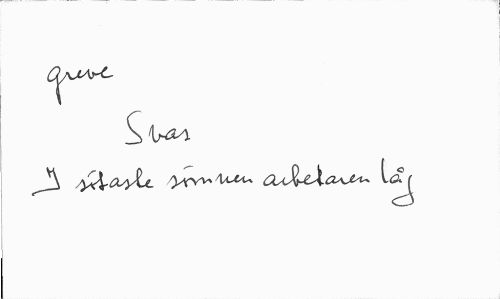 greve
Svar
I sötaste sömnen arbetaren låg